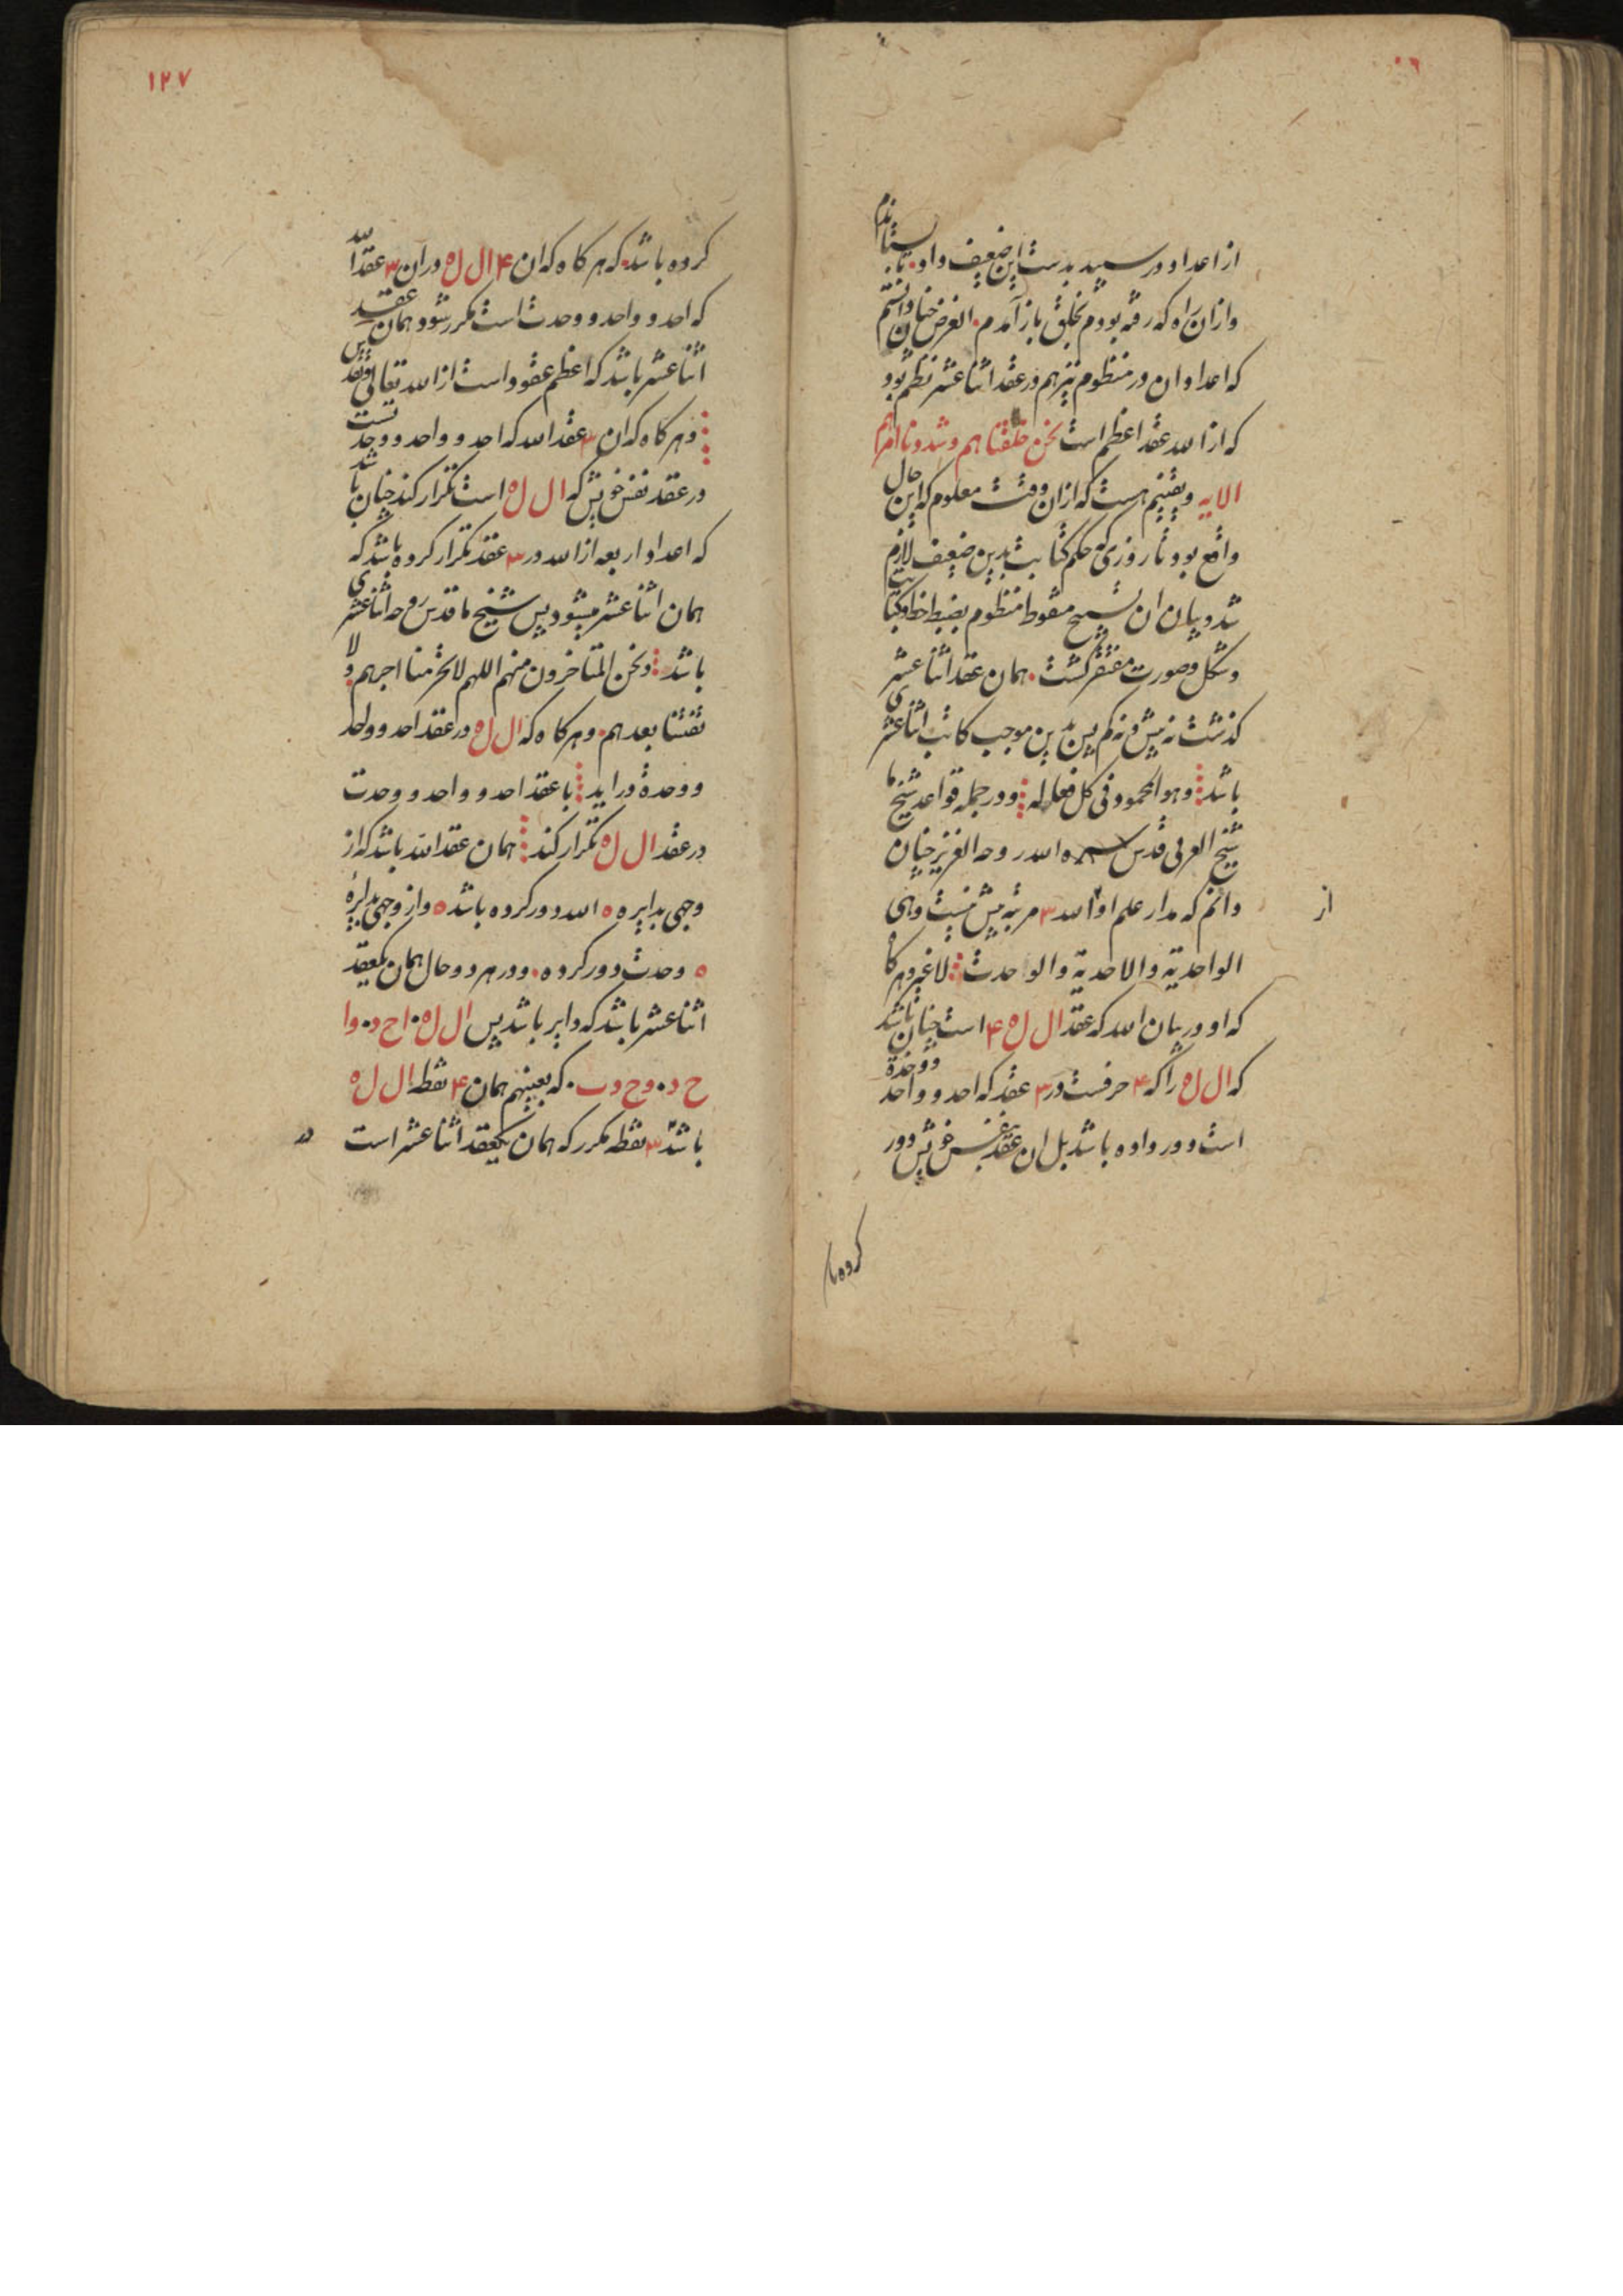 از اعداد در رسید بدست این ضعیف داد. بازستاندم
و از آن راه که رفته بودم بخلق باز آمدم. الغرض چنان دانستم
که اعداد ان در منظوم نیز هم در عقد اثنا عشر نظم بود
که از الله عقد اعظم است نحن خلقناهم و شددنا اسرهم
الایه و یقینم هست که از ان وقت معلوم که این حال
واقع بود تا روزی که حکم کتابت بدین ضعیف لازم
شد و بیان ان تسبیح منقوط منظوم بضبط خط و کتابت
و شکل و صورت مفتقر کشت. همان عقد اثنا عشری
کذشت نه بیش و نه کم پس بدین موجب کاتب اثنا عشری
باشد وهو المحمود فی کل فعاله و در جمله قواعد شیخ ما
شیخ العربی قدس الله روحه العزیز چنان
دانم که مدار علم او از الله ۳ مرتبه بیش نیست وهی
از
الواحدیة والاحدیة والوحدت لا غیر و هرکاه
که او در بیان الله که عقد ال ل ه ۴ است چنان باشد
که ال ل ه را که ۴ حرفست در ۳ عقد که احد و واحد و وحدة
است دور داده باشد بل ان عقد بنفس خویش دور
کرده با
۱۲۷
کرده باشد. که هرکاه که ان ۴ ال ل ه در ان ۳ عقد الله
که احد و واحد و وحدت است مکرر شود همان عقد
اثنا عشر باشد که اعظم عقود است از الله تعالی
و هرکاه که ان ۳ عقد الله که احد و واحد و وحدتست
در عقد نفس خویش که ال ل ه است تکرار کند چنان باشد
که اعداد اربعه از الله در ۳ عقد تکرار کرده باشد که
همان اثنا عشر میشود پس شیخ ما قدس روحه اثنا عشری
باشد ونحن المتاخرون منهم اللهم لا تحرمنا اجرهم ولا
تفتنا بعدهم. و هرکاه که ال ل ه در عقد احد و واحد
و وحدة در اید با عقد احد و واحد و وحدت
در عقد ال ل ه تکرار کند همان عقد الله باشد که از
وجهی بدایره ه الله دور کرده باشد ه و از وجهی بدایرهٔ
ه وحدت دور کرده. و در هر دو حال همان یکعقد
اثنا عشر باشد که دایر باشد پس ال ل ه. اح د. وا
ح د. وح دت. که بعینهم همان ۴ نقطه ال ل ه
باشد ۳ نقطه مکرر که همان یکعقد اثنا عشر است